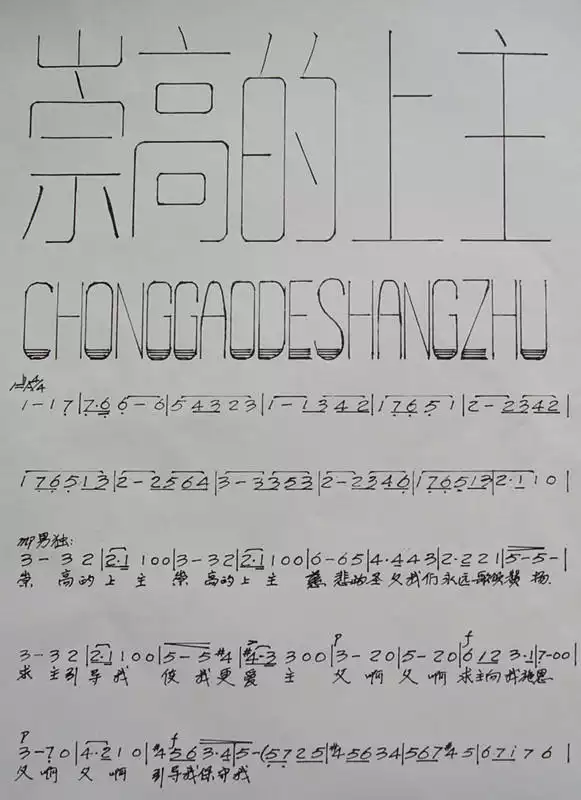 崇高的上主
CHONGGAODESHANGZHU
1-1 7|7·6 6-6|5 4 3 2 3|1-1 3 4 2|1 7 6 5 1|2-2 3 4 2|
1 7 6 5 1 3|2-2 5 6 4|3-3 3 5 3|2-2 3 4 6|1 7 6 5 1 3|2·1 1 0|
mp 男独:
3-3 2|2·1 1 0 0|3-3 2|2·1 1 0 0|6-6 5|4·4 4 3|2·2 2 1|5-5-|
崇 高的上 主 崇 高的上 主 慈 悲的圣父我们永远 赞 扬
3-3 2|2·1 1 0 0|5-5 #4|#4-3 3 0 0|3-2 0|5-2 0|6 1 2 3·1|7-0 0|
求 主引导我 使 我更爱 主 父 啊 父 啊 求主向我施恩
3-7 0|4·2 1 0|#4 5 6 3·4|5-(5 7 2 5|#4 5 6 3 4|5 6 7 #4 5|6 7 i 7 6|
父 啊 父 啊 引导我保守我